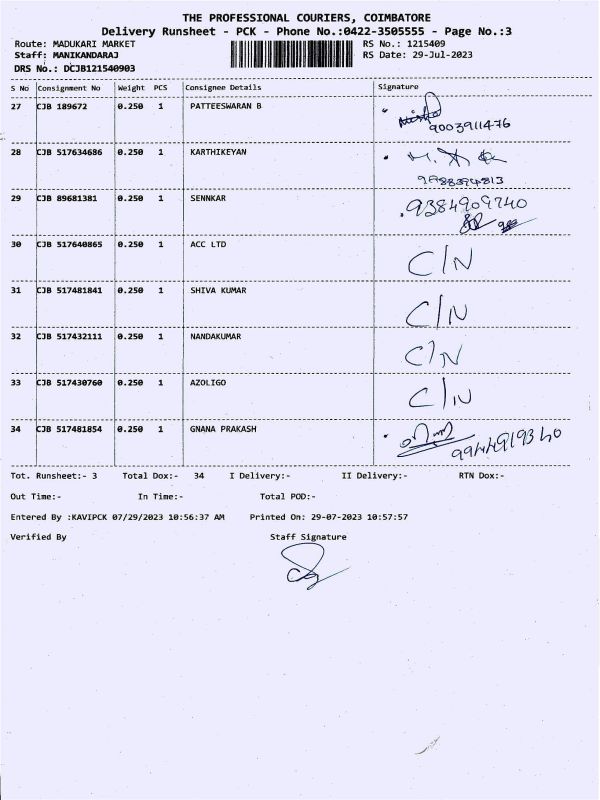 THE PROFESSIONAL COURIERS, COIMBATORE
Delivery Runsheet - PCK - Phone No.:0422-3505555 - Page No.:3
Route: MADUKARI MARKET RS No.: 1215409
Staff: MANIKANDARAJ RS Date: 29-Jul-2023
DRS No.: DCJB121540903
S No Consignment No Weight PCS Consignee Details Signature
27 CJB 189672 0.250 1 PATTEESWARAN B
9003911476
28 CJB 517634686 0.250 1 KARTHIKEYAN
29 CJB 89681381 0.250 1 SENNKAR 9384909740
30 CJB 517640865 0.250 1 ACC LTD C/N
31 CJB 517481841 0.250 1 SHIVA KUMAR C/N
32 CJB 517432111 0.250 1 NANDAKUMAR C/N
33 CJB 517430760 0.250 1 AZOLIGO C/N
34 CJB 517481854 0.250 1 GNANA PRAKASH 9944919340
Tot. Runsheet:- 3 Total Dox:- 34 I Delivery:- II Delivery:- RTN Dox:-
Out Time:- In Time:- Total POD:-
Entered By :KAVIPCK 07/29/2023 10:56:37 AM Printed On: 29-07-2023 10:57:57
Verified By Staff Signature